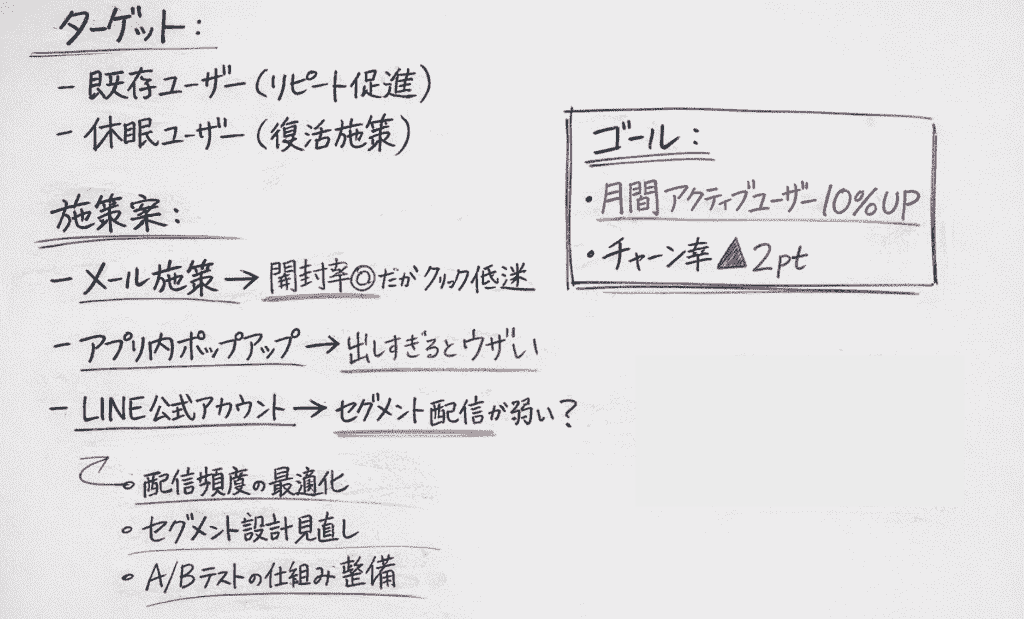 ターゲット:
- 既存ユーザー(リピート促進)
- 休眠ユーザー(復活施策)
施策案:
- メール施策→開封率◎だがクリック低迷
- アプリ内ポップアップ→出しすぎるとウザい
- LINE公式アカウント→セグメント配信が弱い?
◦配信頻度の最適化
◦セグメント設計見直し
◦A/Bテストの仕組み整備
ゴール:
・月間アクティブユーザー10%UP
・チャーン率▲2pt